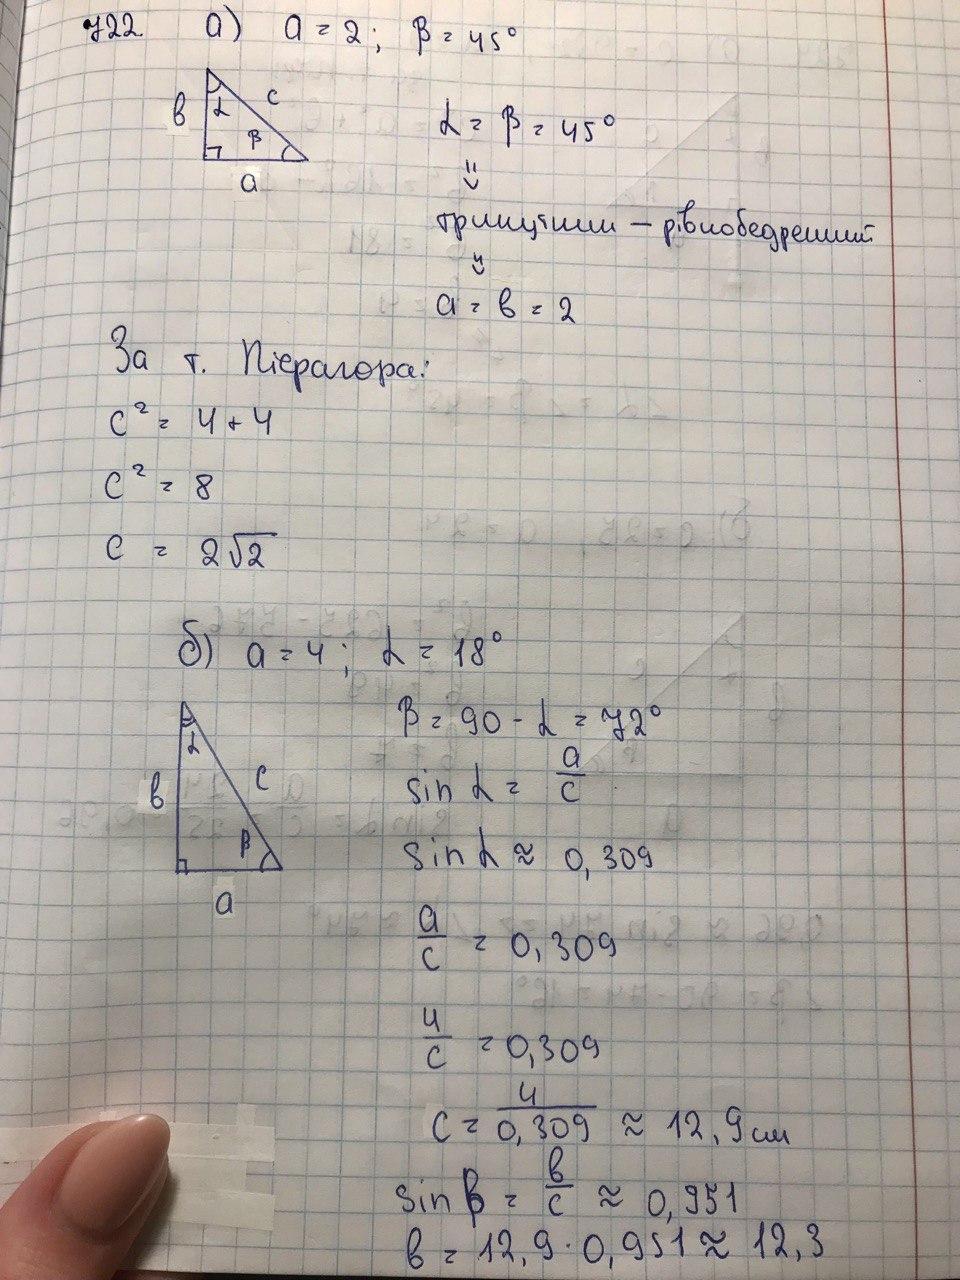 722 а) a = 2; β = 45°
в α c
β
a
α = β = 45°
=>
трикутник – рівнобедрений
=>
a = в = 2
За т. Піфагора:
c² = 4 + 4
c² = 8
c = 2√2
б) a = 4; α = 18°
α
в c
β
a
β = 90 - α = 72°
sin α = a/c
sin α ≈ 0,309
a/c = 0,309
4/c = 0,309
c = 4/0,309 ≈ 12,9 см
sin β = в/c ≈ 0,951
в = 12,9 · 0,951 ≈ 12,3